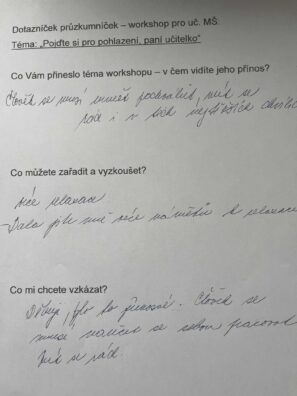 Dotazníček průzkumníček – workshop pro uč. MŠ:
Téma: „Pojďte si pro pohlazení, paní učitelko"
Co Vám přineslo téma workshopu – v čem vidíte jeho přínos?
Člověk se musí umět pochválit, mít se
rád i v těch nejtěžších chvílích
Co můžete zařadit a vyzkoušet?
více relaxace
- Dala jste mi více námětů k relaxaci
Co mi chcete vzkázat?
Děkuji, bylo to přínosné. Člověk se
musí naučit se sebou pracovat
Mít se rád.